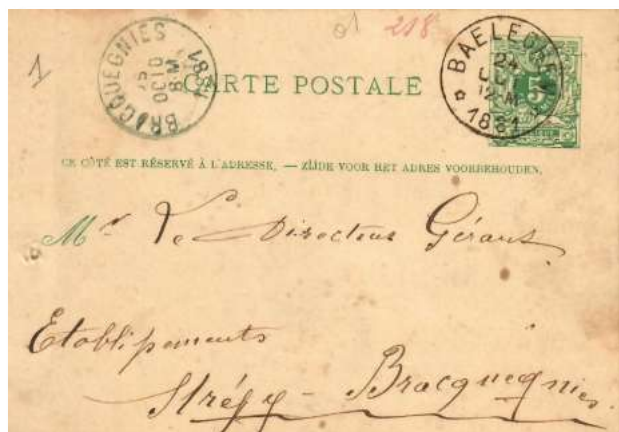 1
218
BRACQUEGNIES
OCTO
8 M
1881
CARTE POSTALE
BAELEGHEM
24
12 M
1881
5
CE CÔTÉ EST RÉSERVÉ À L'ADRESSE. — ZIJDE VOOR HET ADRES VOORBEHOUDEN.
Mr Le Directeur Gérant
Etablissements
Strépy - Bracquegnies